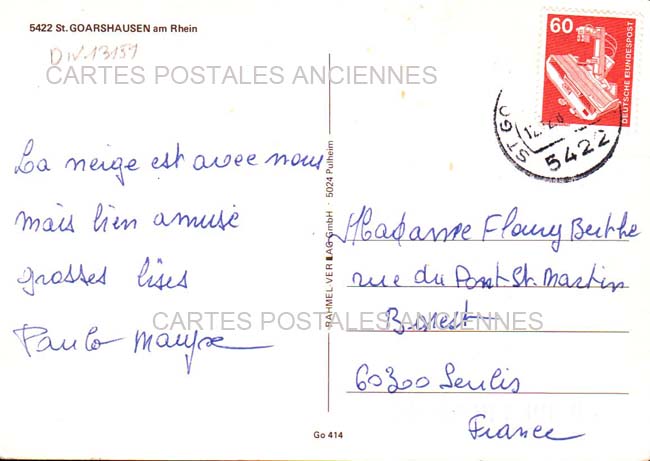 5422 St. GOARSHAUSEN am Rhein
Div. 13151
CARTES POSTALES ANCIENNES
60
DEUTSCHE BUNDESPOST
ST GO
5422
La neige est avec nous
mais bien amusé
grosses bises
Paulo
RAHMEL-VERLAG GmbH · 5024 Pulheim
Madame Fleury Berthe
rue du Pont St. Martin
CARTES POSTALES ANCIENNES
60300 Senlis
France
Go 414